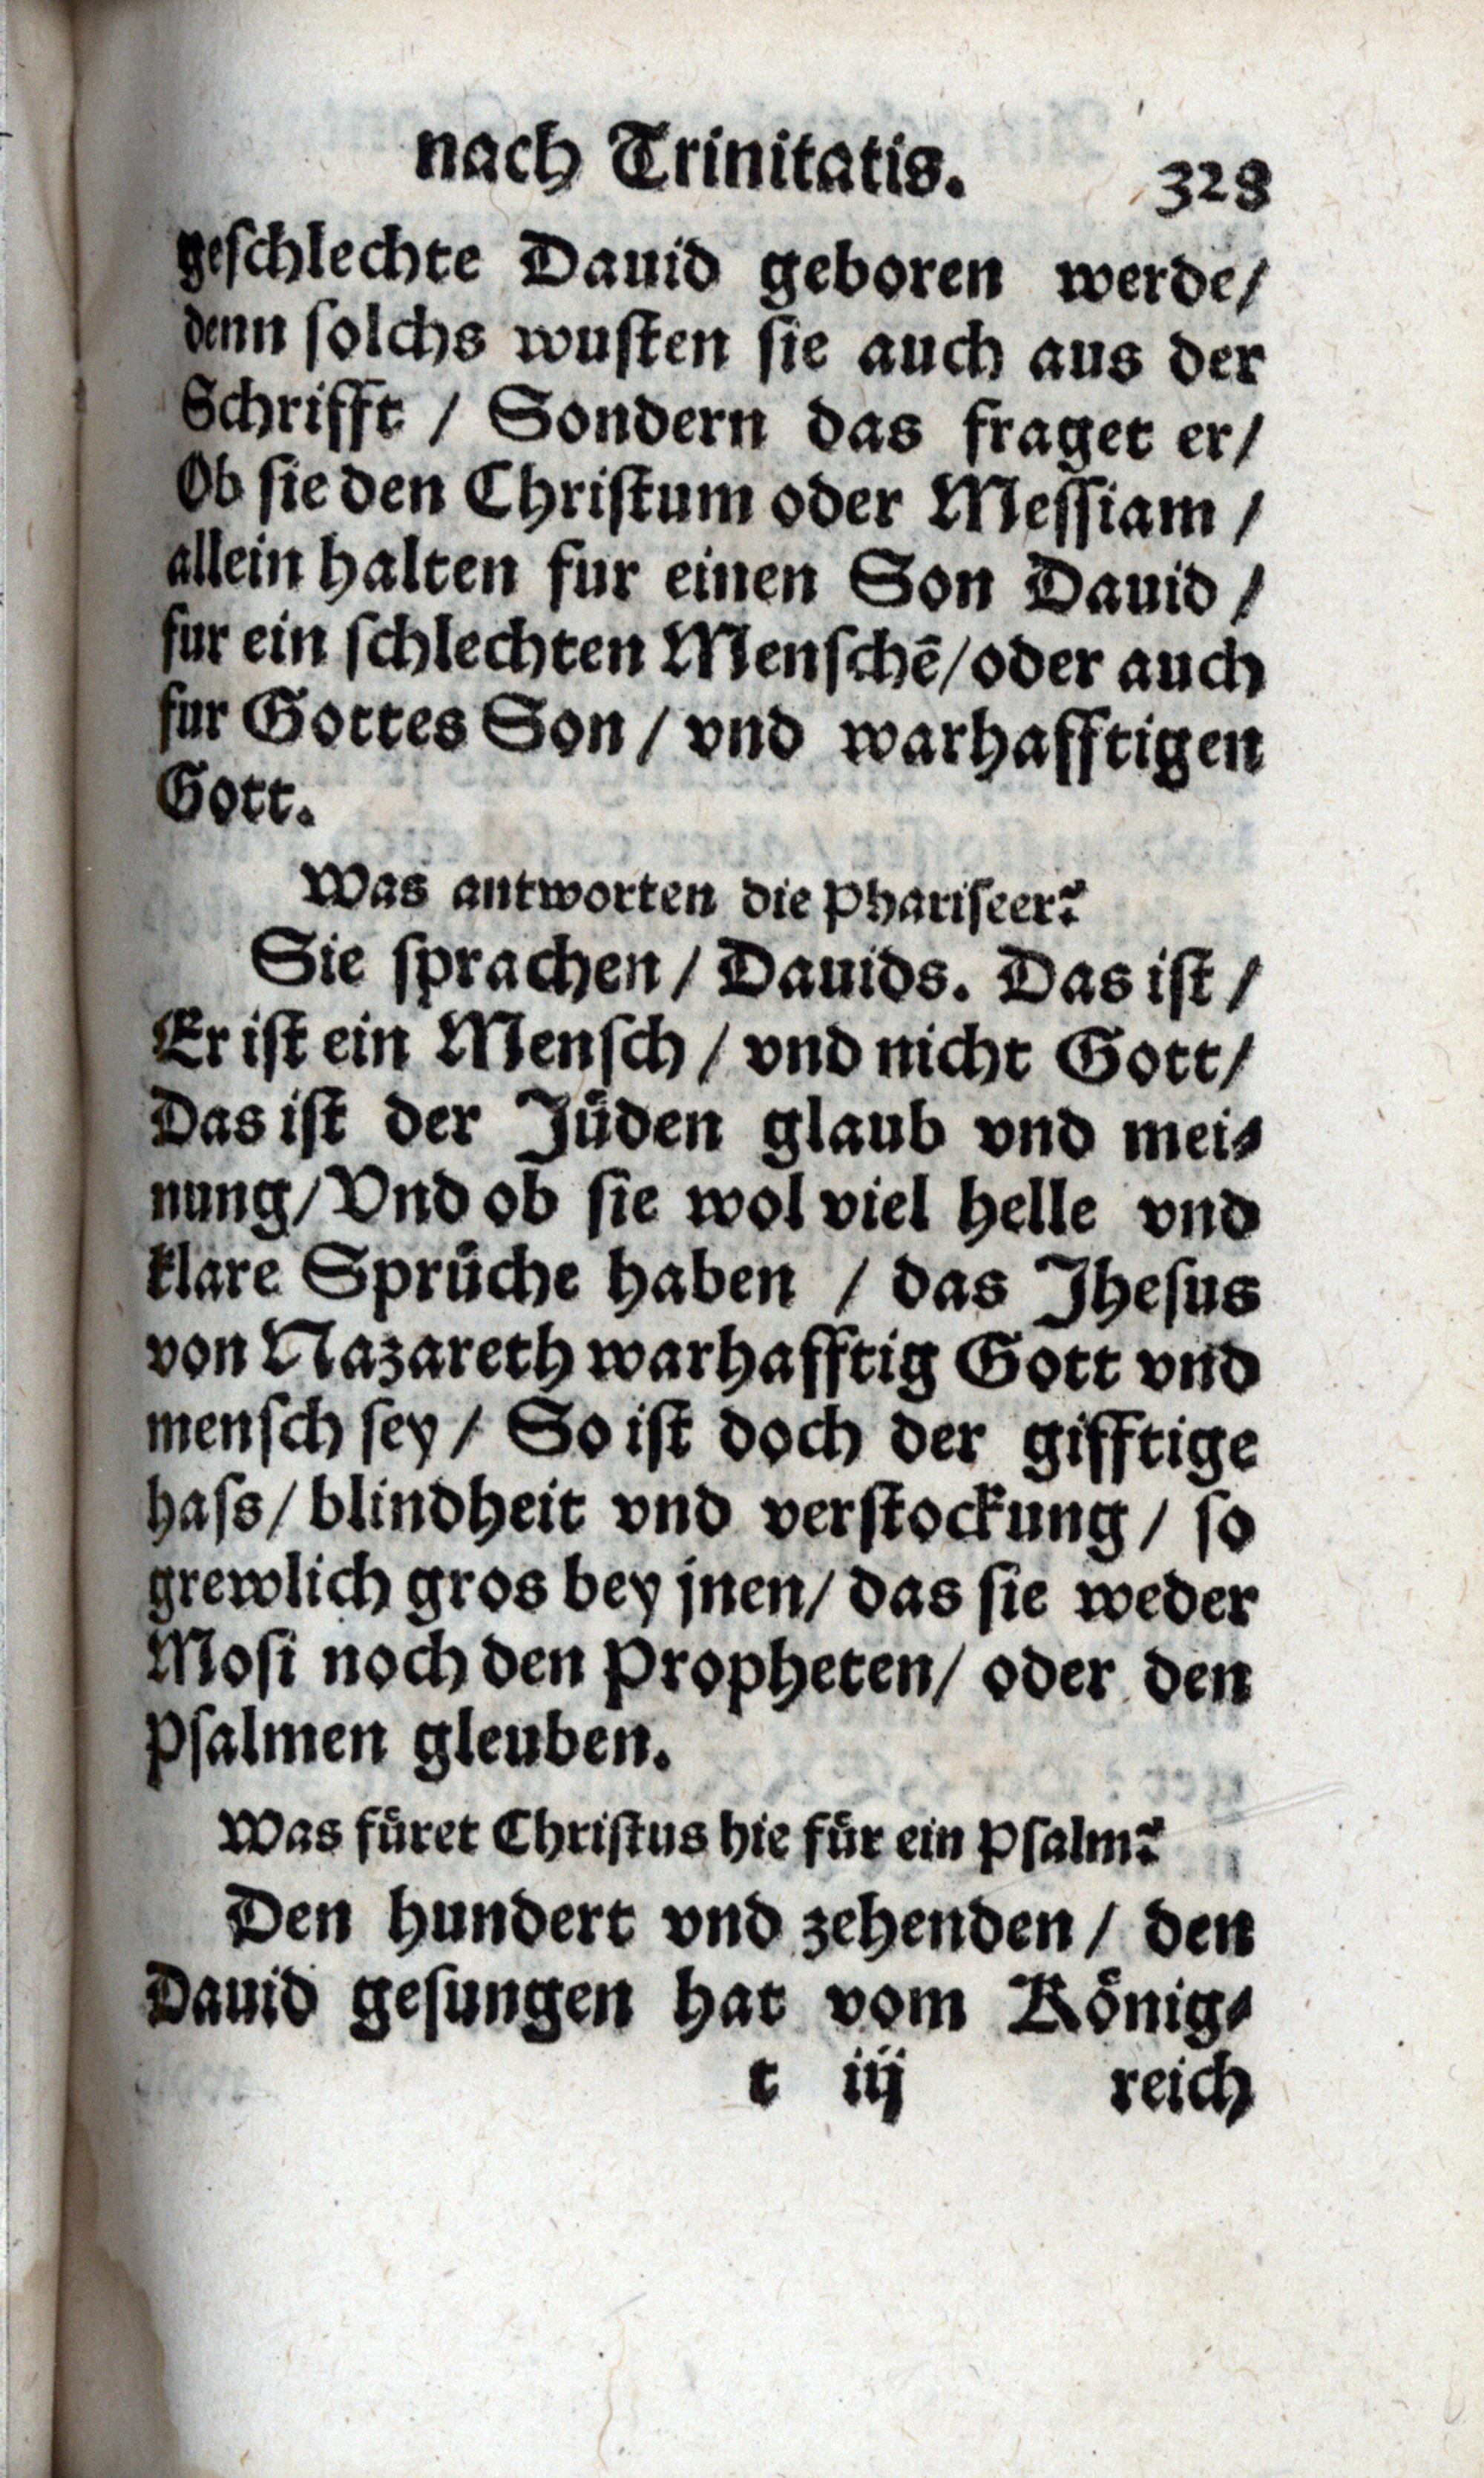 nach Trinitatis. 328
geschlechte Dauid geboren werde/
denn solchs wusten sie auch aus der
Schrifft / Sondern das fraget er/
Ob sie den Christum oder Messiam /
allein halten fur einen Son Dauid /
fur ein schlechten Menschē/oder auch
fur Gottes Son / vnd warhafftigen
Gott.
Was antworten die Phariseer?
Sie sprachen / Dauids. Das ist /
Er ist ein Mensch / vnd nicht Gott/
Das ist der Jüden glaub vnd mei⸗
nung/Vnd ob sie wol viel helle vnd
klare Sprüche haben / das Jhesus
von Nazareth warhafftig Gott vnd
mensch sey / So ist doch der gifftige
hass/ blindheit vnd verstockung / so
grewlich gros bey jnen/ das sie weder
Mosi noch den Propheten/ oder den
Psalmen gleuben.
Was füret Christus hie für ein Psalm?
Den hundert vnd zehenden / den
Dauid gesungen hat vom König⸗
t iij reich